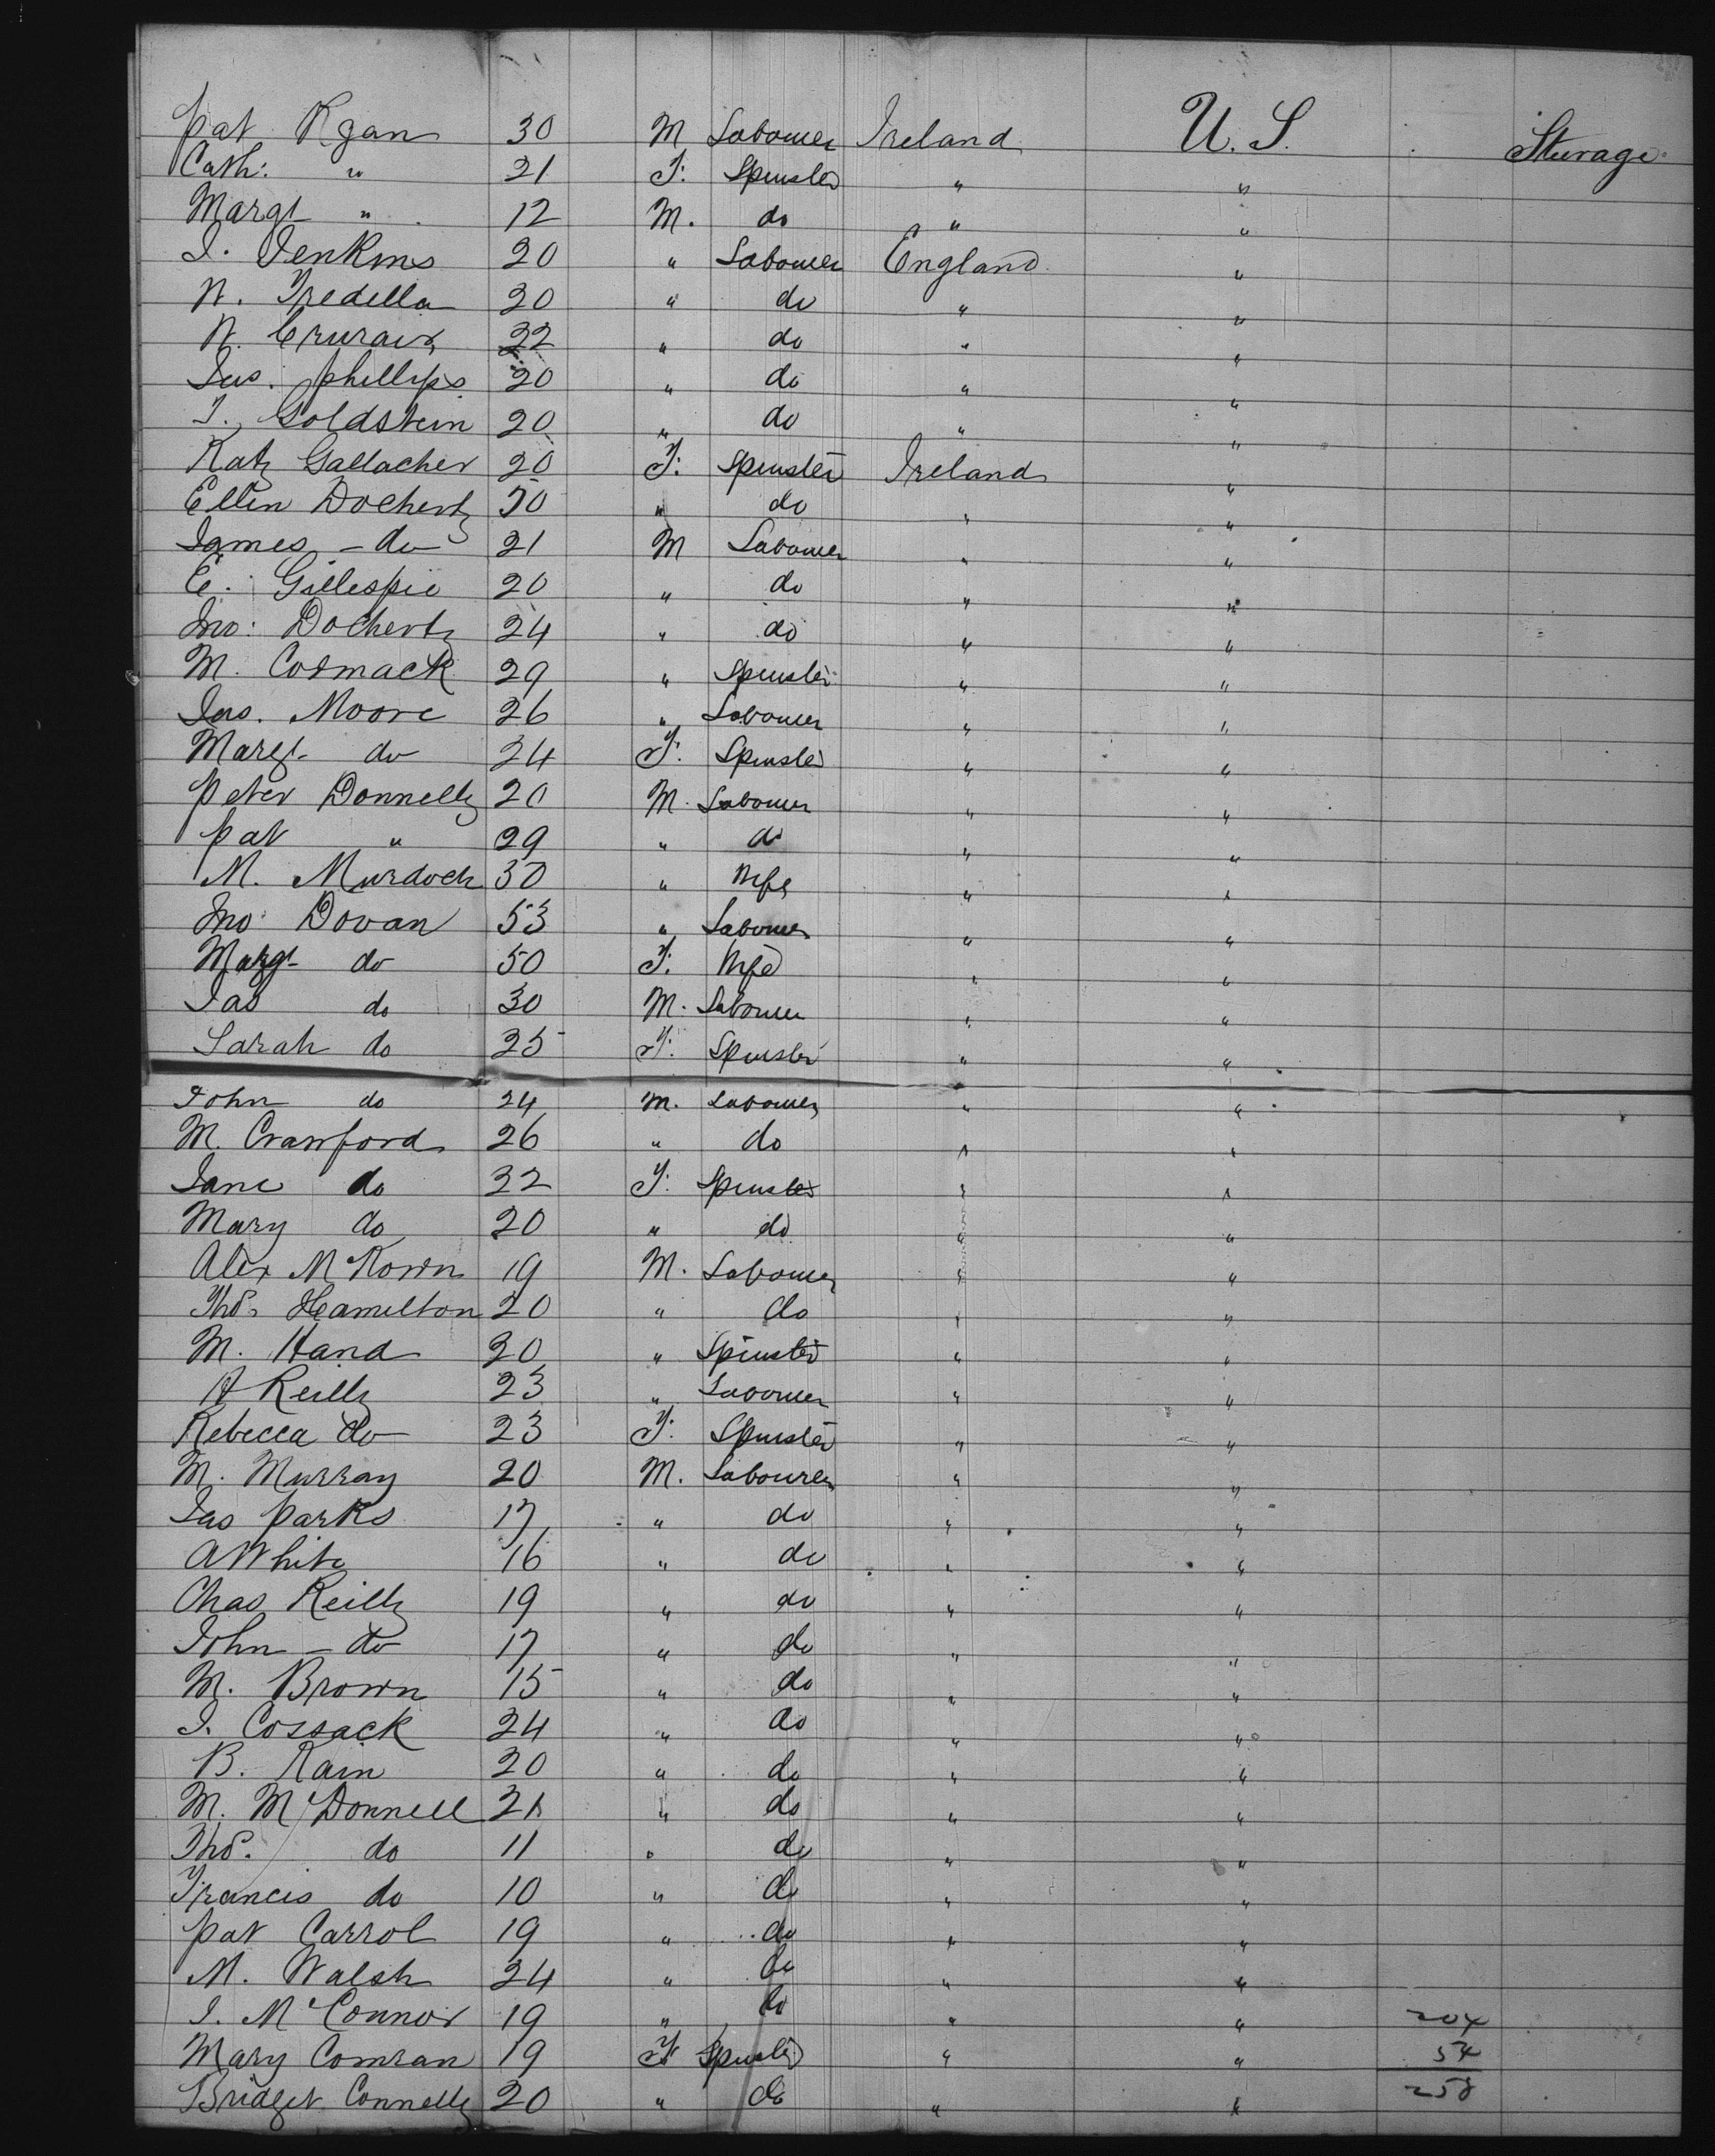 Pat Ryan 30 M Labourer Ireland U.S. Steerage
Cath: " 21 F. Spinster " "
Margt " 12 M. do " "
I. Jenkins 20 " Labourer England "
N. Tredella 20 " do " "
N. 22 " do " "
Jas. Phillips 20 " do " "
I. Goldstein 20 " do " "
Katy Gallacher 20 F. Spinster Ireland "
Ellen Docherty 50 " do " "
James - do 21 M Labourer " "
E. Gillespie 20 " do " "
Jno: Docherty 24 " do " "
M. Cormack 29 " Spinster " "
Jas. Moore 26 " Labourer " "
Margt do 24 F. Spinster " "
Peter Donnelly 20 M. Labourer " "
Pat " 29 " do " "
M. Murdoch 30 " Wife " "
Jno Dovan 53 " Labourer " "
Margt do 50 F. Wife " "
Jas do 30 M. Labourer " "
Sarah do 25 F. Spinster " "
John do 24 M. Labourer " "
M. Crawford 26 " do " "
Jane do 22 F. Spinster " "
Mary do 20 " do " "
Alex McKown 19 M. Labourer " "
Thos Hamilton 20 " do " "
M. Hand 20 " Spinster " "
A Reilly 23 " Labourer " "
Rebecca do 23 F. Spinster " "
M. Murray 20 M. Labourer " "
Jas Parks 17 " do " "
A White 16 " do " "
Chas Reilly 19 " do " "
John - do 17 " do " "
M. Brown 15 " do " "
I. Cossack 24 " do " "
B. Kain 20 " do " "
M. McDonnell 21 " do " "
Thos. do 11 " do " "
Francis do 10 " do " "
Pat Carrol 19 " do " "
M. Walsh 24 " do " "
I. McConnor 19 " do " " 204
Mary Comran 19 F Spinster " " 54
Bridget Connelly 20 " do " " 258